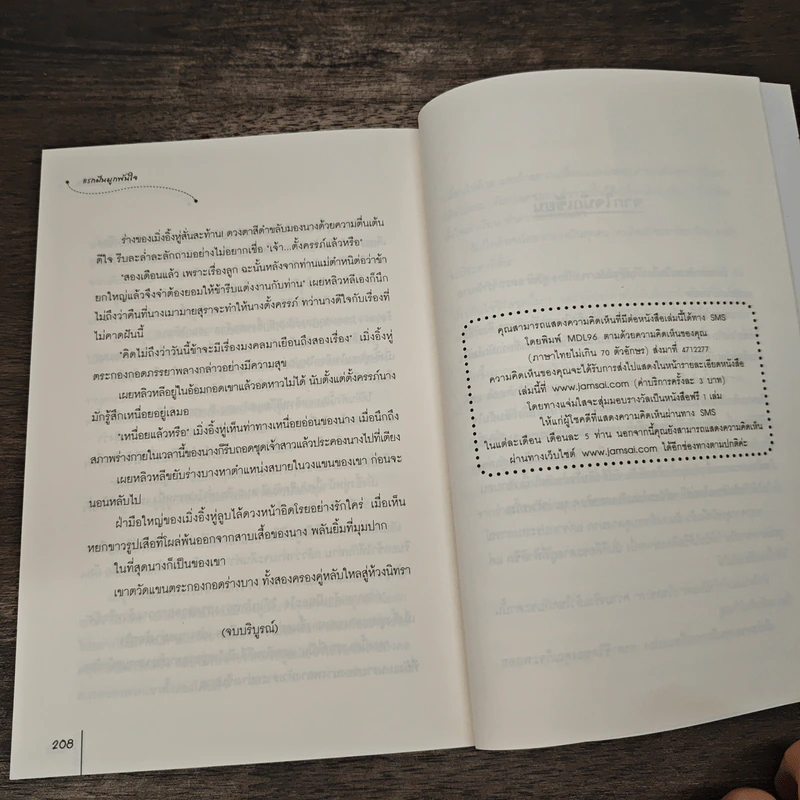 แรกฝันผูกพันใจ
ร่างของเมิ่งอิ้งหู่สั่นสะท้าน! ดวงตาสีดำขลับมองนางด้วยความตื่นเต้น
ดีใจ รีบละล่ำละลักถามอย่างไม่อยากเชื่อ "เจ้า...ตั้งครรภ์แล้วหรือ"
"สองเดือนแล้ว เพราะเรื่องลูก ฉะนั้นหลังจากท่านแม่ตำหนิต่อว่าข้า
ยกใหญ่แล้วจึงจำต้องยอมให้ข้ารีบแต่งงานกับท่าน" เผยหลิวหลีเองก็นึก
ไม่ถึงว่าคืนที่นางเมามายสุราจะทำให้นางตั้งครรภ์ ทว่านางดีใจกับเรื่องที่
ไม่คาดฝันนี้
"คิดไม่ถึงว่าวันนี้ข้าจะมีเรื่องมงคลมาเยือนถึงสองเรื่อง" เมิ่งอิ้งหู่
ตระกองกอดภรรยาพลางกล่าวอย่างมีความสุข
เผยหลิวหลีอยู่ในอ้อมกอดเขาแล้วอดหาวไม่ได้ นับตั้งแต่ตั้งครรภ์นาง
มักรู้สึกเหนื่อยอยู่เสมอ
"เหนื่อยแล้วหรือ" เมิ่งอิ้งหู่เห็นท่าทางเหนื่อยอ่อนของนาง เมื่อนึกถึง
สภาพร่างกายในเวลานี้ของนางก็รีบถอดชุดเจ้าสาวแล้วประคองนางไปที่เตียง
เผยหลิวหลีขยับร่างบางหาตำแหน่งสบายในวงแขนของเขา ก่อนจะ
นอนหลับไป
ฝ่ามือใหญ่ของเมิ่งอิ้งหู่ลูบไล้ดวงหน้าอิดโรยอย่างรักใคร่ เมื่อเห็น
หยกขาวรูปเสือที่โผล่พ้นออกจากสาบเสื้อของนาง พลันยิ้มที่มุมปาก
ในที่สุดนางก็เป็นของเขา
เขาตวัดแขนตระกองกอดร่างบาง ทั้งสองครองคู่หลับใหลสู่ห้วงนิทรา
(จบบริบูรณ์)
208
คุณสามารถแสดงความคิดเห็นที่มีต่อหนังสือเล่มนี้ได้ทาง SMS
โดยพิมพ์ MDL96 ตามด้วยความคิดเห็นของคุณ
(ภาษาไทยไม่เกิน 70 ตัวอักษร) ส่งมาที่ 4712277
ความคิดเห็นของคุณจะได้รับการส่งไปแสดงในหน้ารายละเอียดหนังสือ
เล่มนี้ที่ www.jamsai.com (ค่าบริการครั้งละ 3 บาท)
โดยทางแจ่มใสจะสุ่มมอบรางวัลเป็นหนังสือฟรี 1 เล่ม
ให้แก่ผู้โชคดีที่แสดงความคิดเห็นผ่านทาง SMS
ในแต่ละเดือน เดือนละ 5 ท่าน นอกจากนี้คุณยังสามารถแสดงความคิดเห็น
ผ่านทางเว็บไซต์ www.jamsai.com ได้อีกช่องทางตามปกติค่ะ